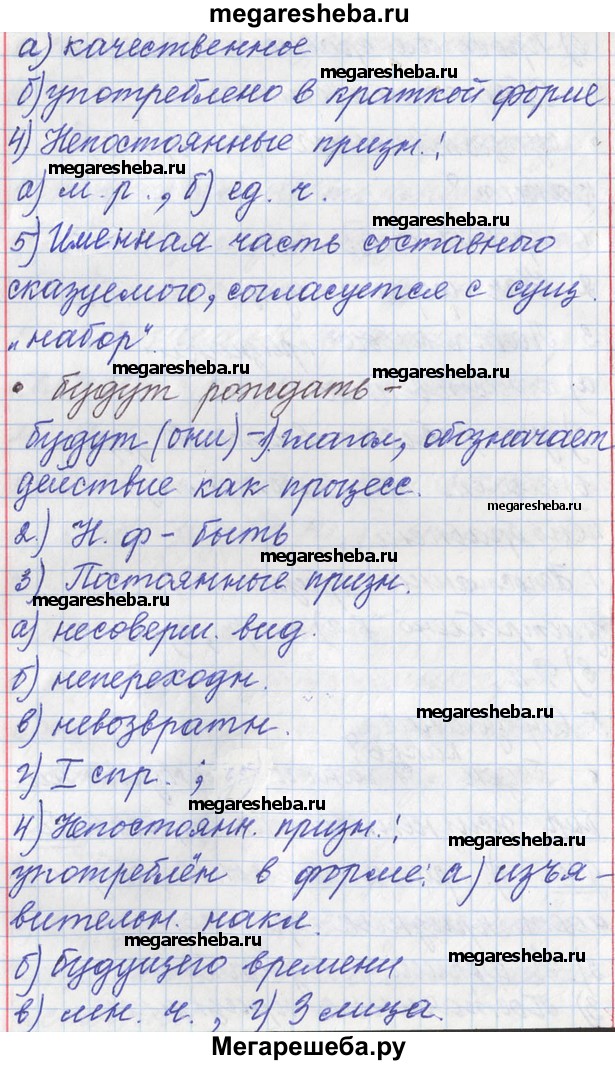 megaresheba.ru
а) качественное
megaresheba.ru
б) употреблено в краткой форме
4) Непостоянные призн.:
megaresheba.ru
а) м. р., б) ед. ч.
megaresheba.ru
5) Именная часть составного
сказуемого, согласуется с сущ.
„набор".
megaresheba.ru
• будут рождать –
будут (они) – 1) глагол, обозначает
действие как процесс.
megaresheba.ru
2.) Н. ф – быть
megaresheba.ru
3) Постоянные призн.
megaresheba.ru
а) несоверш. вид.
б) непереходн.
megaresheba.ru
в) невозвратн.
г) I спр. ;
megaresheba.ru
4) Непостоянн. призн.:
megaresheba.ru
употреблён в форме: а) изъя-
вительн. накл.
megaresheba.ru
б) будущего времени
megaresheba.ru
в) мн. ч., г) 3 лица.
megaresheba.ru
Мегарешеба.ру